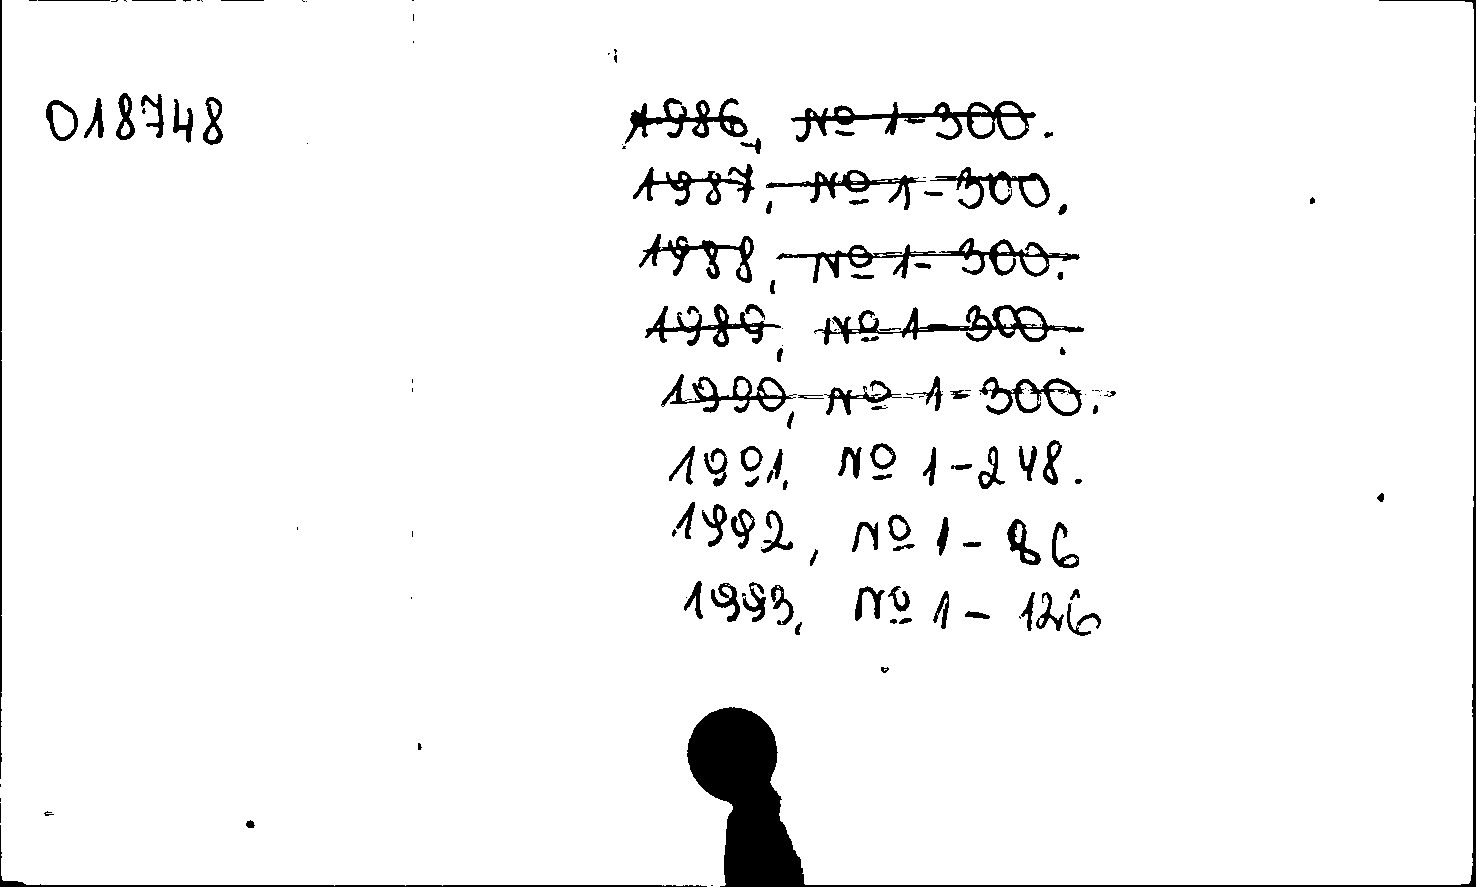 018748
1986, № 1-300.
1987, № 1-300.
1988, № 1-300.
1989, № 1-300.
1990, № 1-300.
1991, № 1-248.
1992, № 1-86
1993, № 1-126